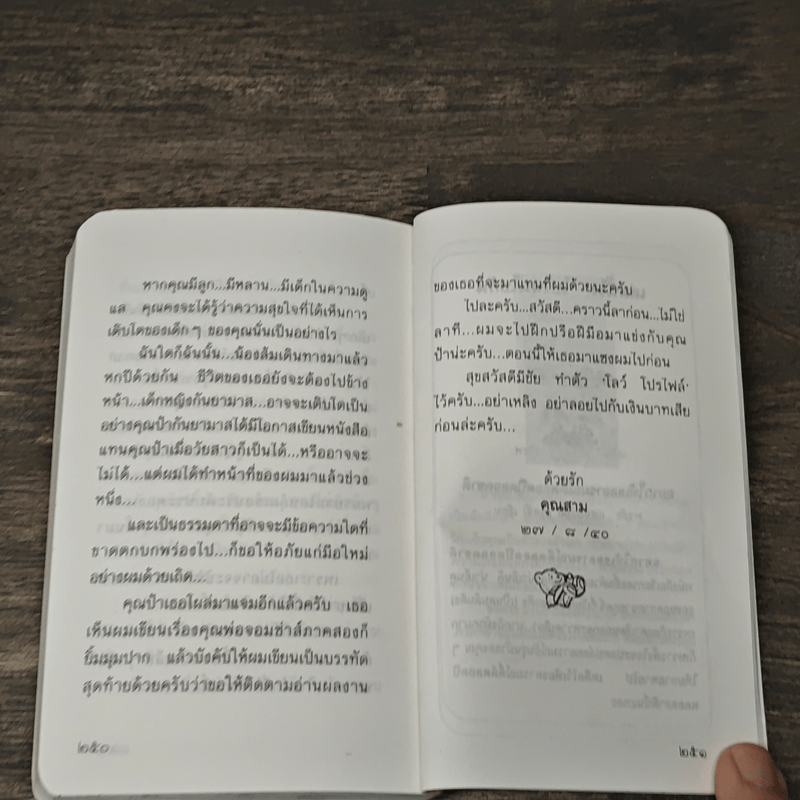 หากคุณมีลูก...มีหลาน...มีเด็กในความดู
แล คุณคงจะได้รู้ว่าความสุขใจที่ได้เห็นการ
เติบโตของเด็กๆ ของคุณนั่นเป็นอย่างไร
ฉันใดก็ฉันนั้น...น้องส้มเดินทางมาแล้ว
หกปีด้วยกัน ชีวิตของเธอยังจะต้องไปข้าง
หน้า...เด็กหญิงกันยามาส...อาจจะเติบโตเป็น
อย่างคุณป้ากันยามาสได้มีโอกาสเขียนหนังสือ
แทนคุณป้าเมื่อวัยสาวก็เป็นได้...หรืออาจจะ
ไม่ได้...แต่ผมได้ทำหน้าที่ของผมมาแล้วช่วง
หนึ่ง...
และเป็นธรรมดาที่อาจจะมีข้อความใดที่
ขาดตกบกพร่องไป...ก็ขอให้อภัยแก่มือใหม่
อย่างผมด้วยเถิด...
คุณป้าเธอโผล่มาแจมอีกแล้วครับ เธอ
เห็นผมเขียนเรื่องคุณพ่อจอมซ่าส์ภาคสองก็
ยิ้มมุมปาก แล้วบังคับให้ผมเขียนเป็นบรรทัด
สุดท้ายด้วยครับว่าขอให้ติดตามอ่านผลงาน
๒๕๐
ของเธอที่จะมาแทนที่ผมด้วยนะครับ
ไปละครับ...สวัสดี...คราวนี้ลาก่อน...ไม่ใช่
ลาที...ผมจะไปฝึกปรือฝีมือมาแข่งกับคุณ
ป้าน่ะครับ...ตอนนี้ให้เธอมาแซงผมไปก่อน
สุขสวัสดีมีชัย ทำตัว 'โลว์ โปรไฟล์'
ไว้ครับ...อย่าเหลิง อย่าลอยไปกับเงินบาทเสีย
ก่อนล่ะครับ...
ด้วยรัก
คุณสาม
๒๗ / ๘ /๔๐
๒๕๑